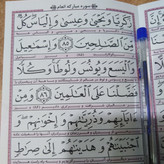 سوره مباركه انعام
زَكَرِيَّا وَيَحْيَىٰ وَعِيسَىٰ وَإِلْيَاسَ كُلٌّ
مِنَ الصَّالِحِينَ ٨٥ وَإِسْمَاعِيلَ
وَالْيَسَعَ وَيُونُسَ وَلُوطًا وَكُلًّا
فَضَّلْنَا عَلَى الْعَالَمِينَ ٨٦ وَمِنْ
آبَائِهِمْ وَذُرِّيَّاتِهِمْ وَإِخْوَانِهِمْ وَ
اجْتَبَيْنَاهُمْ وَهَدَيْنَاهُمْ إِلَىٰ صِرَاطٍ